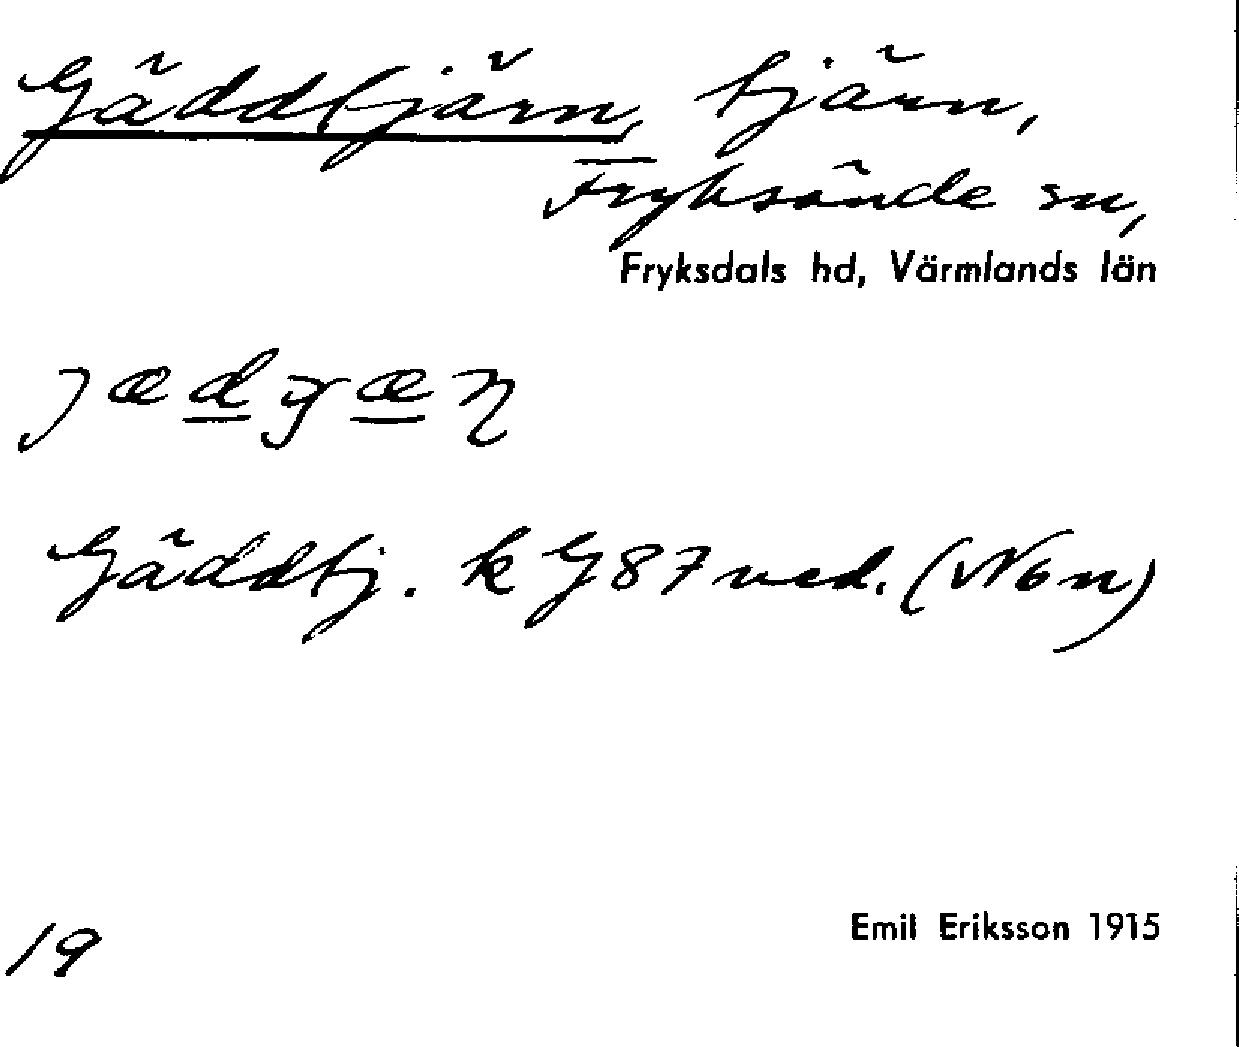 Gäddtjärn, tjärn,
Fryksände sn,
Fryksdals hd, Värmlands län
Gäddtj. k G87 ned. (Non)
19
Emil Eriksson 1915